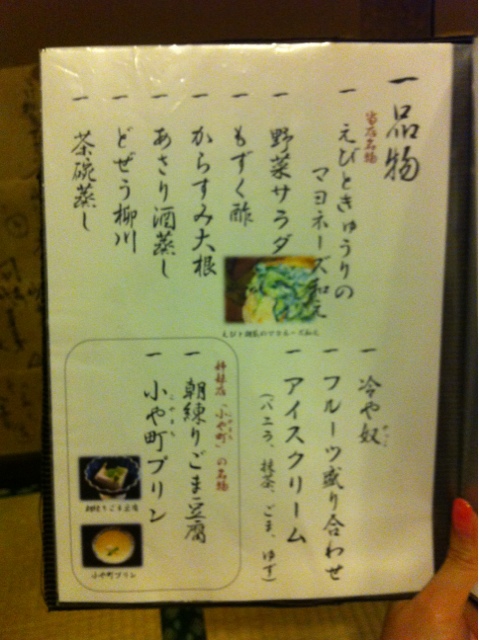 一品物
当店名物
一 えびときゅうりの
マヨネーズ和え
一 野菜サラダ
一 もずく酢
一 からすみ大根
一 あさり酒蒸し
一 どぜう柳川
一 茶碗蒸し
えびと胡瓜のマヨネーズ和え
一 冷や奴
やっこ
一 フルーツ盛り合わせ
一 アイスクリーム
(バニラ、抹茶、ごま、ゆず)
姉妹店「小や町」の名物
こやまち
一 朝練りごま豆腐
一 小や町プリン
こやまち
朝練りごま豆腐
小や町プリン